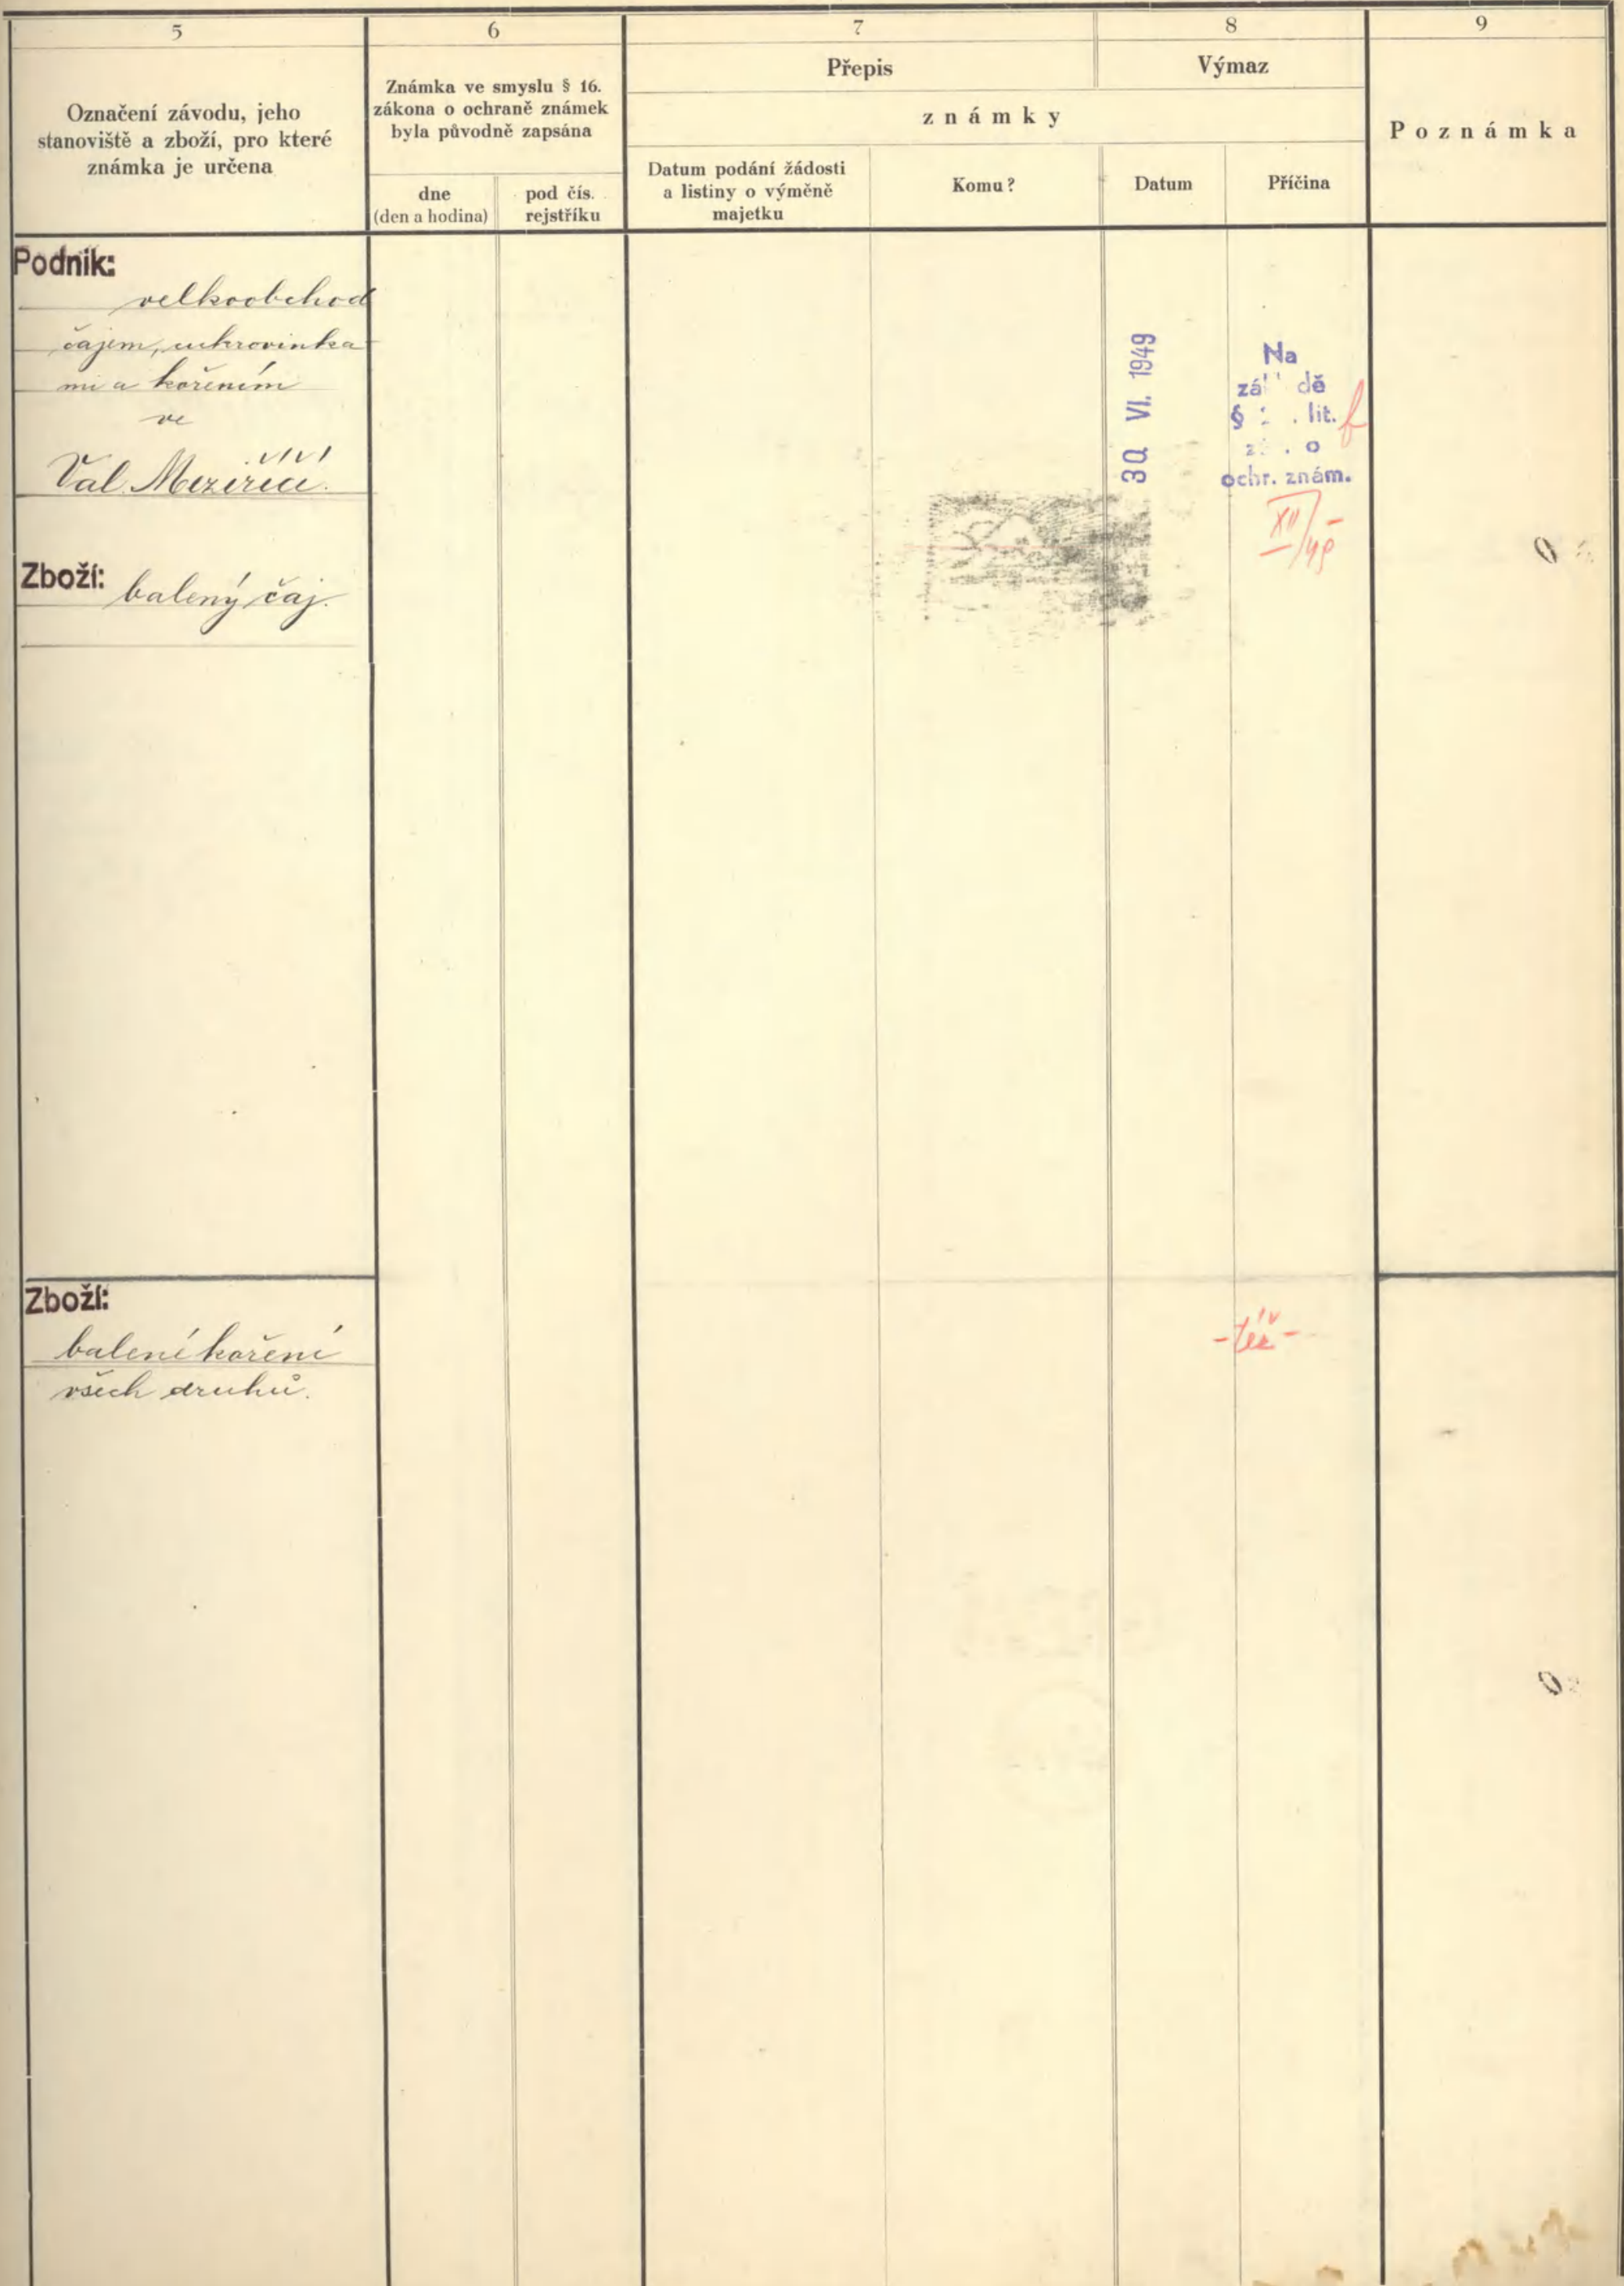 5
6
7
8
9
Označení závodu, jeho
stanoviště a zboží, pro které
známka je určena
Známka ve smyslu § 16.
zákona o ochraně známek
byla původně zapsána
dne
(den a hodina)
pod čís.
rejstříku
Přepis
Výmaz
známky
Datum podání žádosti
a listiny o výměně
majetku
Komu?
Datum
Příčina
Poznámka
Podnik:
velkoobchod
čajem, cukrovinka
mi a kořením
ve
Val. Meziříčí.
Zboží:
balený čaj.
30 VI. 1949
Na
§ lit. f
o
ochr. znám.
XII/48
Zboží:
balené koření
všech druhů.
-téż-